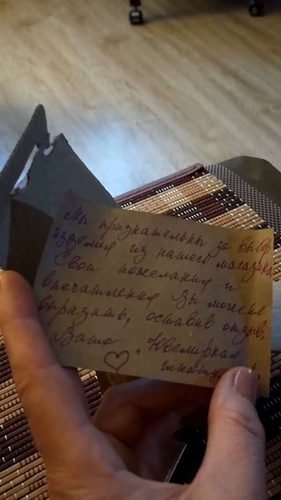 Мы признательны за выбор
изделия из нашего магазина
Свои пожелания и
впечатления Вы можете
выразить, оставив отзыв,
Ваша Ювелирная